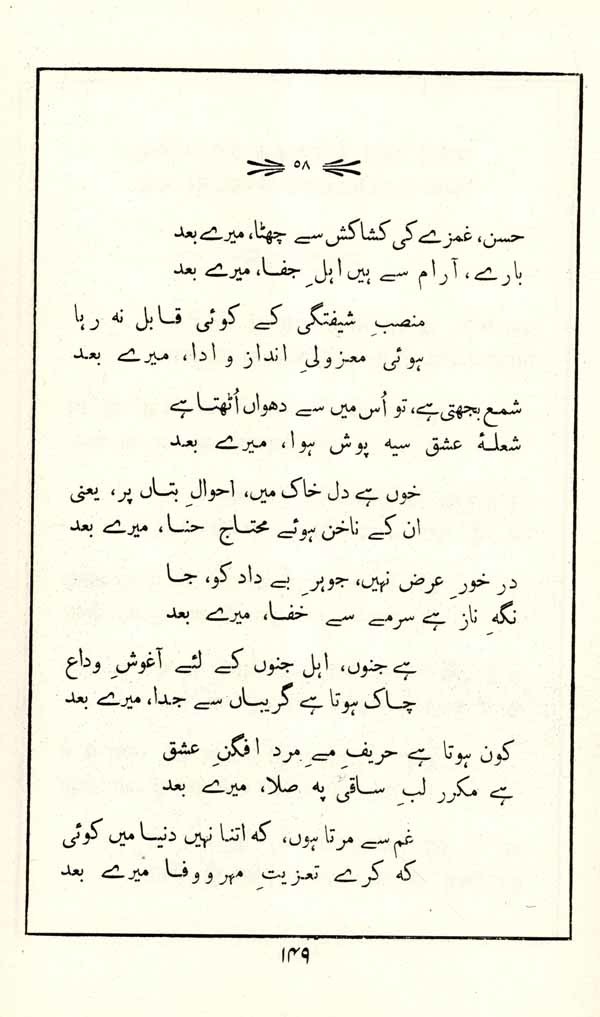 ۵۸
حسن، غمزے کی کشاکش سے چھٹا، میرے بعد
بارے، آرام سے ہیں اہلِ جفا، میرے بعد
منصبِ شیفتگی کے کوئی قابل نہ رہا
ہوئی معزولیِ انداز و ادا، میرے بعد
شمع بجھتی ہے، تو اُس میں سے دھواں اُٹھتا ہے
شعلۂ عشق سیہ پوش ہوا، میرے بعد
خوں ہے دل خاک میں، احوالِ بتاں پر، یعنی
ان کے ناخن ہوئے محتاجِ حنا، میرے بعد
در خورِ عرض نہیں، جوہرِ بے داد کو، جا
نگہِ ناز ہے سرمے سے خفا، میرے بعد
ہے جنوں، اہل جنوں کے لئے آغوشِ وداع
چاک ہوتا ہے گریباں سے جدا، میرے بعد
کون ہوتا ہے حریفِ مےِ مرد افگنِ عشق
ہے مکرر لبِ ساقی پہ صلا، میرے بعد
غم سے مرتا ہوں، کہ اتنا نہیں دنیا میں کوئی
کہ کرے تعزیتِ مہر و وفا میرے بعد
۱۴۹